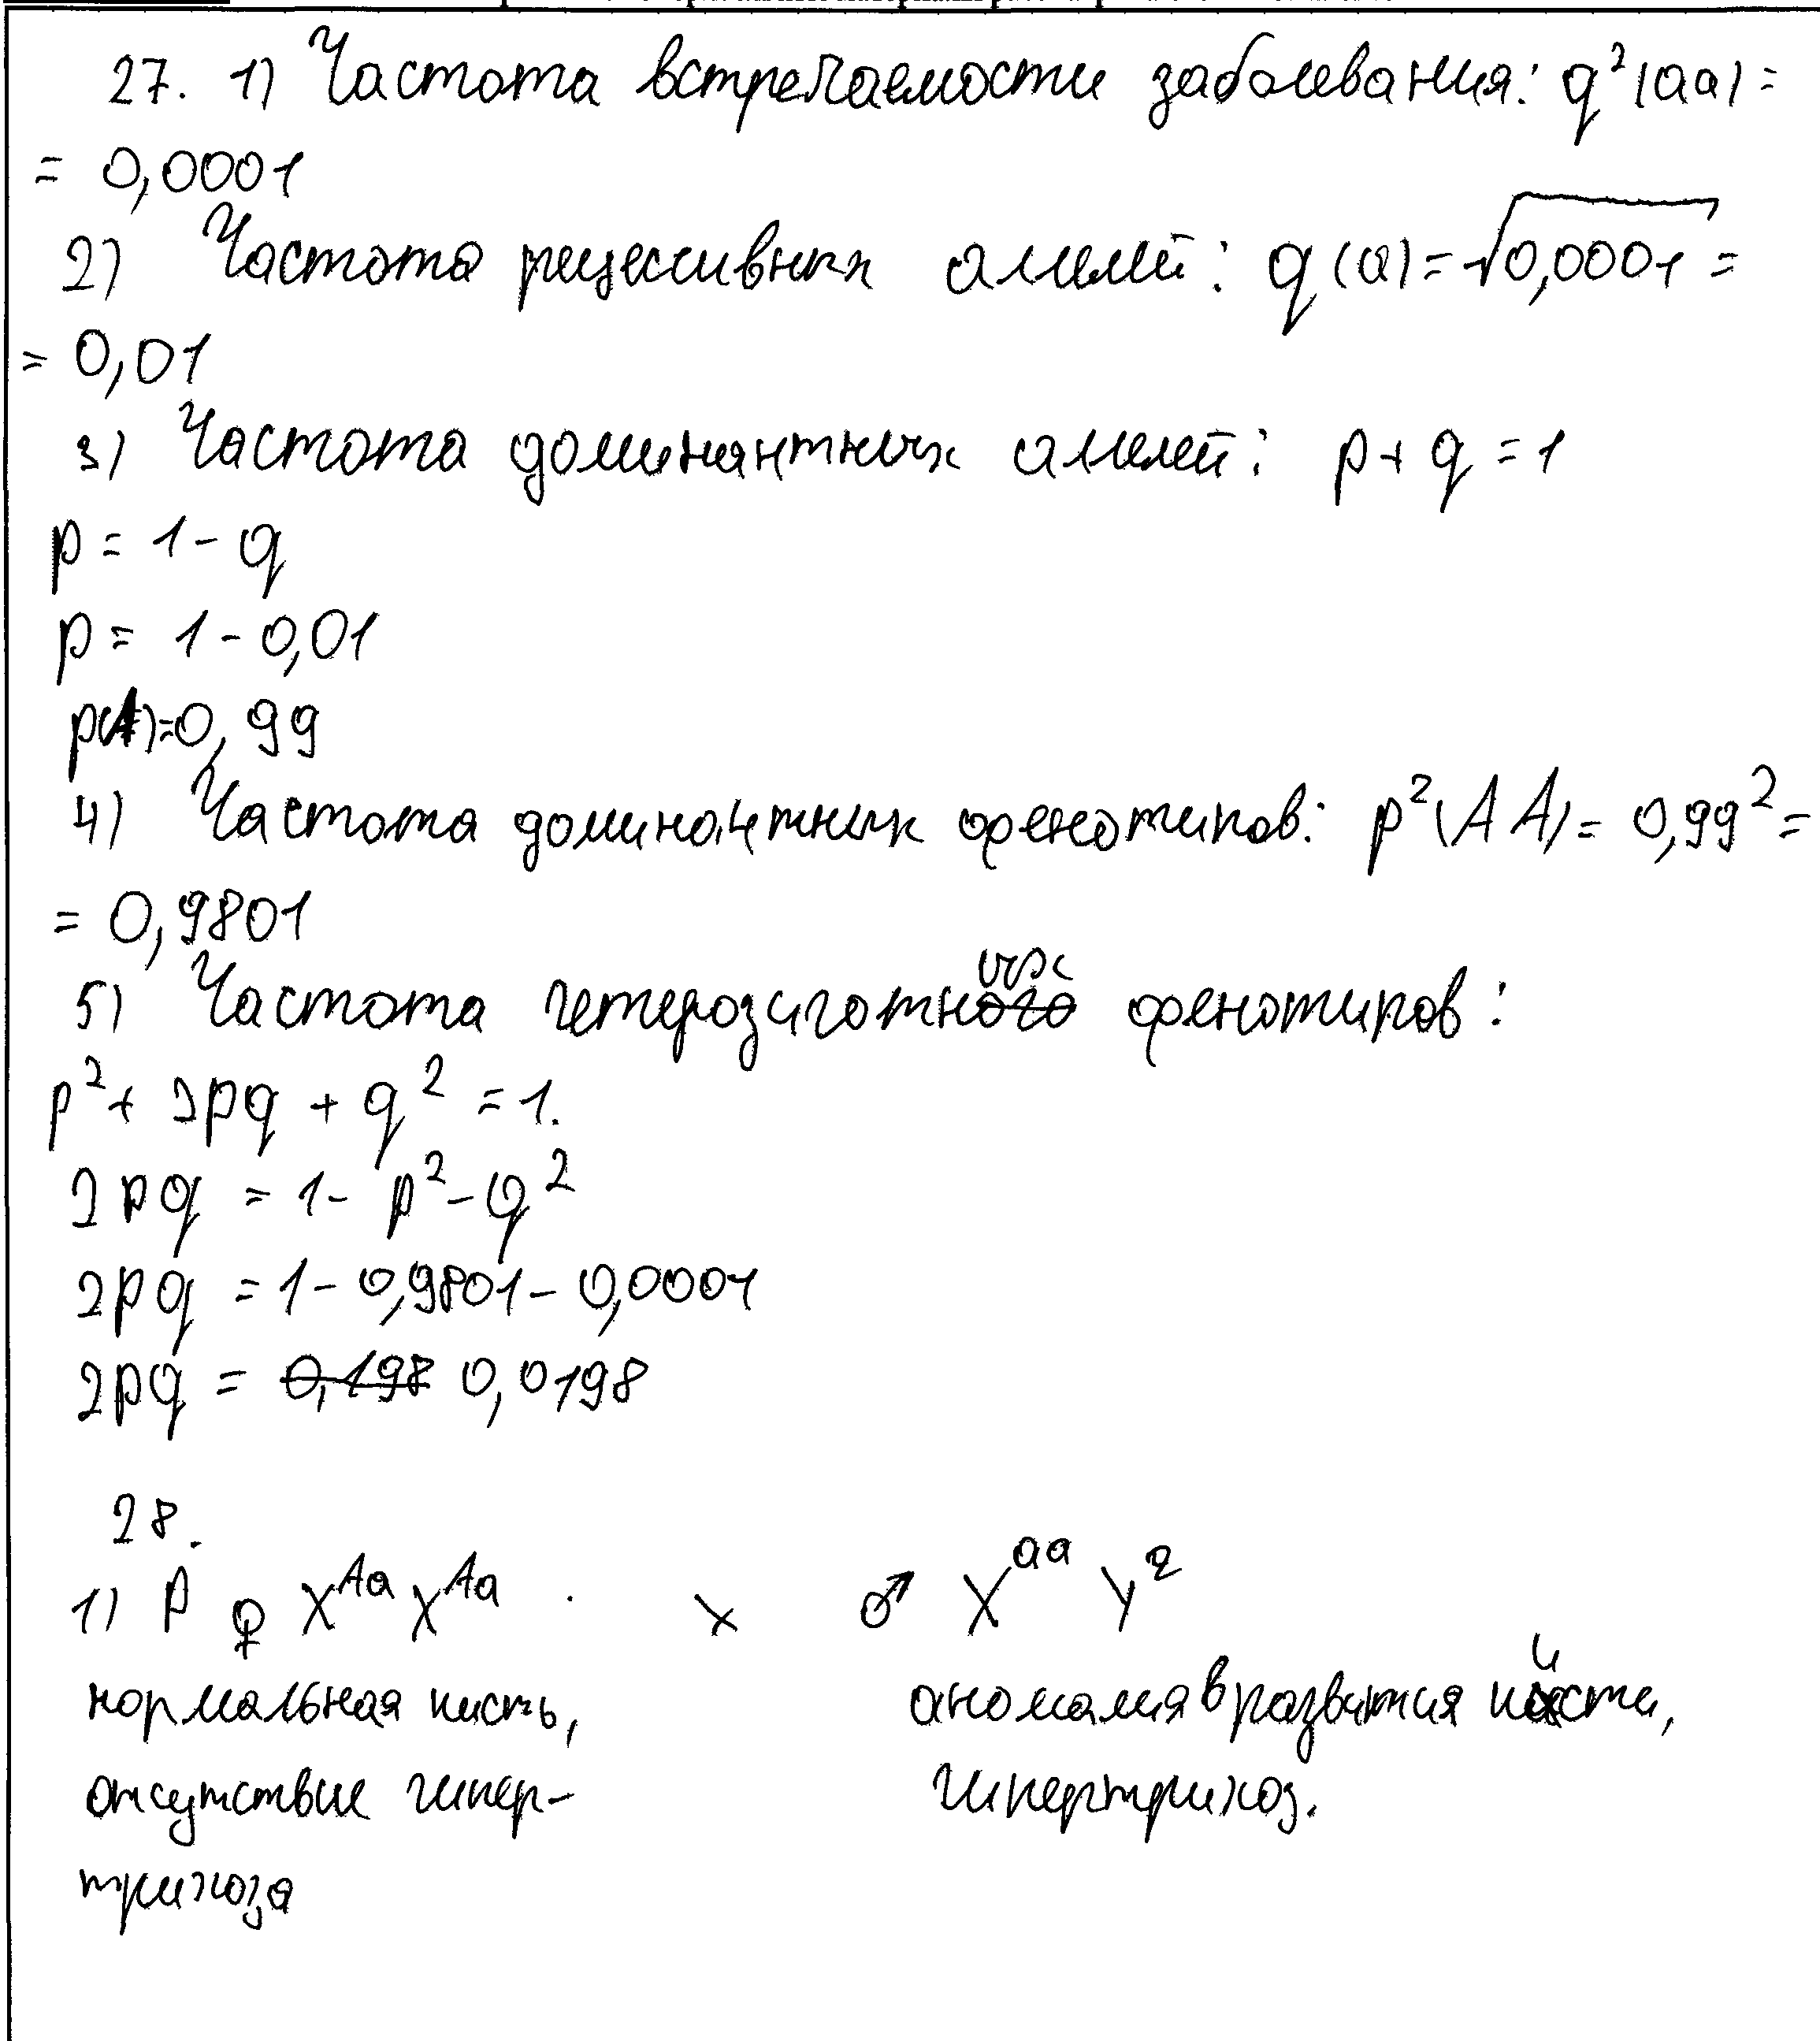 27. 1) Частота встречаемости заболевания: q²(aa) =
= 0,0001
2) Частота рецессивных аллелей: q(a) = √0,0001 =
= 0,01
3) Частота доминантных аллелей: p + q = 1
p = 1 - q
p = 1 - 0,01
p(A) = 0,99
4) Частота доминантных фенотипов: p²(AA) = 0,99² =
= 0,9801
5) Частота гетерозиготных фенотипов:
p² + 2pq + q² = 1.
2pq = 1 - p² - q²
2pq = 1 - 0,9801 - 0,0001
2pq = 0,198 0,0198
28.
1) P ♀ X^Aa X^Aa x ♂ X^aa Y^a
нормальная кисть, аномалия в развития кисти,
отсутствие гипер- гипертрихоз.
трихоза